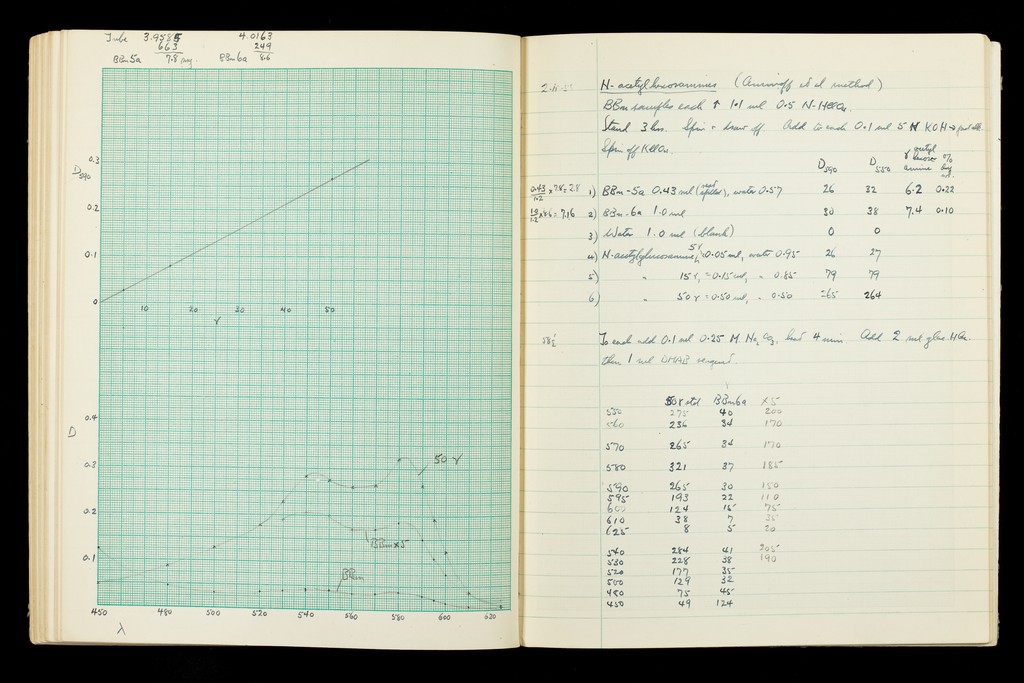 Tube 3.9585 4.0163
663 249
BBm 5a 7.8 mg BBm 6a 8.6
0.3
D590
0.2
0.1
0
10 20 30 40 50
γ
0.4
D
0.3
50 γ
0.2
BBm x5
0.1
BBm
450 480 500 520 540 560 580 600 620
λ
N-acetylhexosamines (Aminoff et al method)
BBm samples each + 1.1 ml 0.5 N-HClO4.
Stand 3 hrs. Spin + draw off. Add to each 0.1 ml 5 N KOH
Spin off KClO4.
D590 D550 γ acetyl hexosamine % dry wt.
0.43/1.2 x 7.8 = 2.8 1) BBm-5a 0.43 ml (rest spilled), water 0.57 26 32 6.2 0.22
1.0/1.2 x 8.6 = 7.16 2) BBm-6a 1.0 ml 30 38 7.4 0.10
3) Water 1.0 ml (blank) 0 0
4) N-acetylglucosamine 5γ = 0.05 ml, water 0.95 26 27
5) " 15γ, = 0.15 ml, " 0.85 79 79
6) " 50γ = 0.50 ml, " 0.50 265 264
To each add 0.1 ml 0.25 M Na2CO3, heat 4 min. Add 2 ml glac. HAc.
then 1 ml DMAB reagent.
50γ std BBm6a x5
550 275 40 200
560 236 34 170
570 265 34 170
580 321 37 185
590 265 30 150
595 193 22 110
600 124 15 75
610 38 7 35
625 8 5 20
540 284 41 205
530 228 38 190
520 177 35
500 129 32
480 75 45
450 49 124